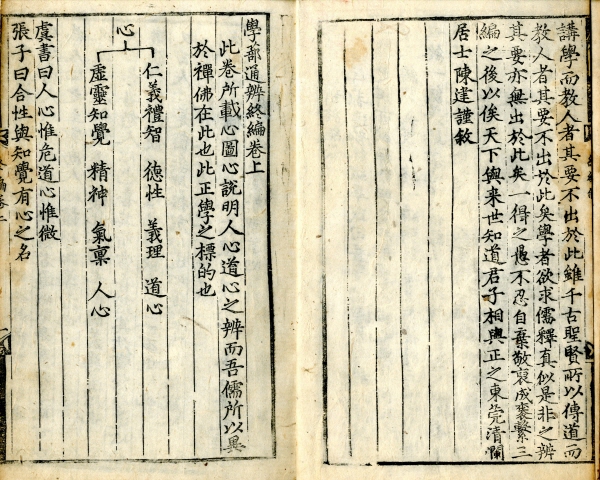 講學而教人者其要不出於此雖千古聖賢所以傳道而
教人者其要不出於此矣學者欲求儒釋真似是非之辨
其要亦無出於此矣一得之愚不忍自棄敬裒成袠繫三
編之後以俟天下與来世知道君子相與正之東莞清瀾
居士陳建謹敘
學蔀通辨終編卷上
此卷所載心圖心說明人心道心之辨而吾儒所以異
於禪佛在此也此正學之標的也
心
仁義禮智 德性 義理 道心
虛靈知覺 精神 氣稟 人心
虞書曰人心惟危道心惟微
張子曰合性與知覺有心之名